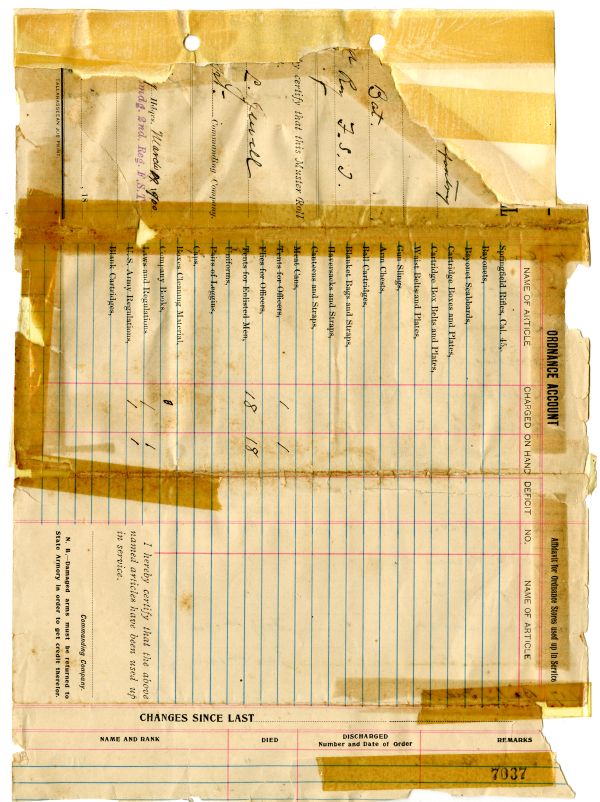 y certify that this Muster Roll
Bat.
Reg F. S. T.
L. Jewell
Commanding Company.
Hdqrs. March 1900
mdg. 2nd. Reg. F. S. T.
, 18
TALLAHASSEAN JOB PRINT.
ORDNANCE ACCOUNT
NAME OF ARTICLE CHARGED ON HAND DEFICIT
Springfield Rifles, Cal. 45,
Bayonets,
Bayonet Scabbards,
Cartridge Boxes and Plates,
Cartridge Box Belts and Plates,
Waist Belts and Plates,
Gun Slings,
Arm Chests,
Ball Cartridges,
Blanket Bags and Straps,
Haversacks and Straps,
Canteens and Straps,
Meat Cans,
Tents for Officers, 1 1
Flies for Officers,
Tents for Enlisted Men, 18 18
Uniforms,
Pairs of Leggins,
Caps,
Boxes Cleaning Material,
Company Books, 0
Laws and Regulations 1 1
U. S. Army Regulations, 1 1
Blank Cartridges,
Affidavit for Ordnance Stores used up in Service
NO. NAME OF ARTICLE
I hereby certify that the above
named articles have been used up
in service.
Commanding Company.
N. B.—Damaged arms must be returned to
State Armory in order to get credit therefor.
CHANGES SINCE LAST
NAME AND RANK DIED DISCHARGED REMARKS
Number and Date of Order
7037